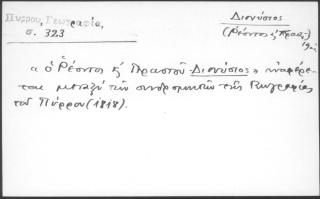 Πύρρου, Γεωγραφία,
σ. 323
Διονύσιος
(Ρέοντος & Πραστ.)
19ος
« ὁ Ῥέοντος & Πραστοῦ Διονύσιος » ἀναφέρε-
ται μεταξὺ τῶν συνδρομητῶν τῆς Γεωγραφίας
τοῦ Πύρρου (1818).